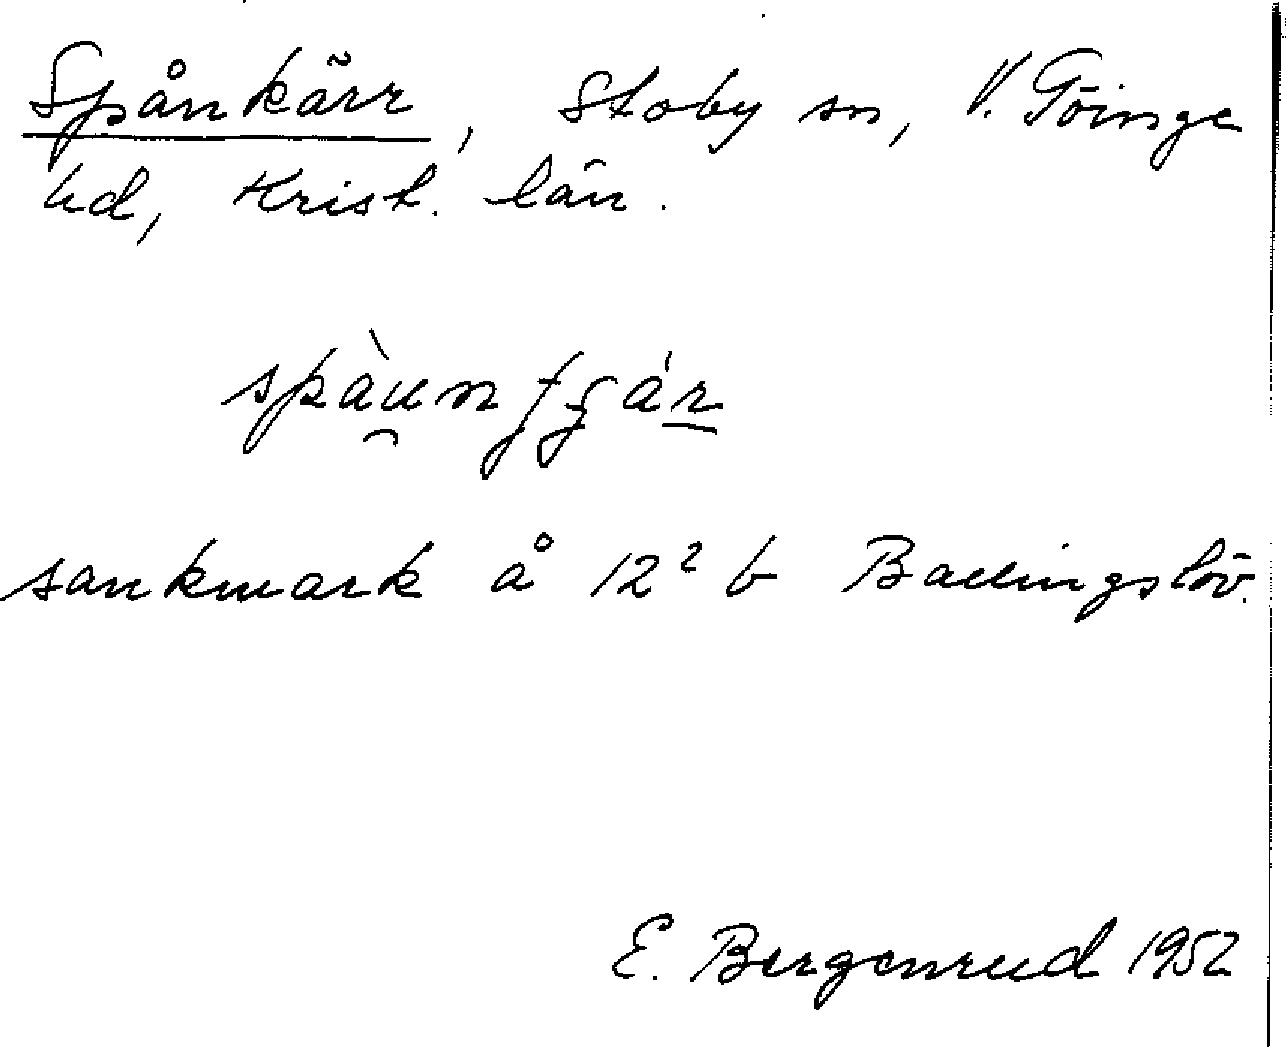 Spånkärr, Stoby sn, V. Göinge
hd, Krist. län.
sankmark å 12² b Ballingslöv.
E. Bergenrud 1952